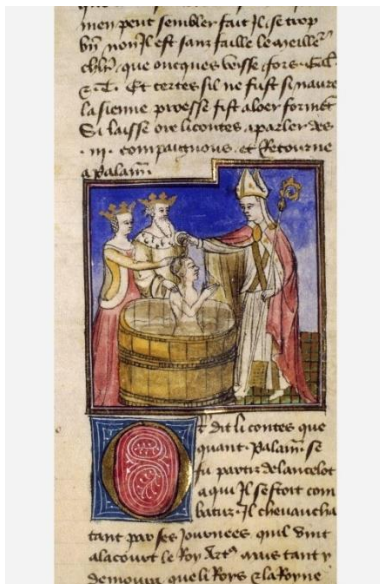 men peut sembler fait Il se trop
bñ non Il est sanz faille le meillẽ
chlr̃, que oncques veisse fors. Gal.
& T. Et certes sil ne fust si navre
la sienne proesse fist aloer formẽt
Si laisse ore li contes a parler des
.iii. compaignons. et Retourne
a palam̃.
Or dit li contes que
quant Palam̃. se
fu partiz de lancelot
a qui Il sestoit com
batuz. Il chevaucha
tant par ses Journees quil vint
a la court le Roy Art9 mais tant y
demoura que li Roys & la Royne